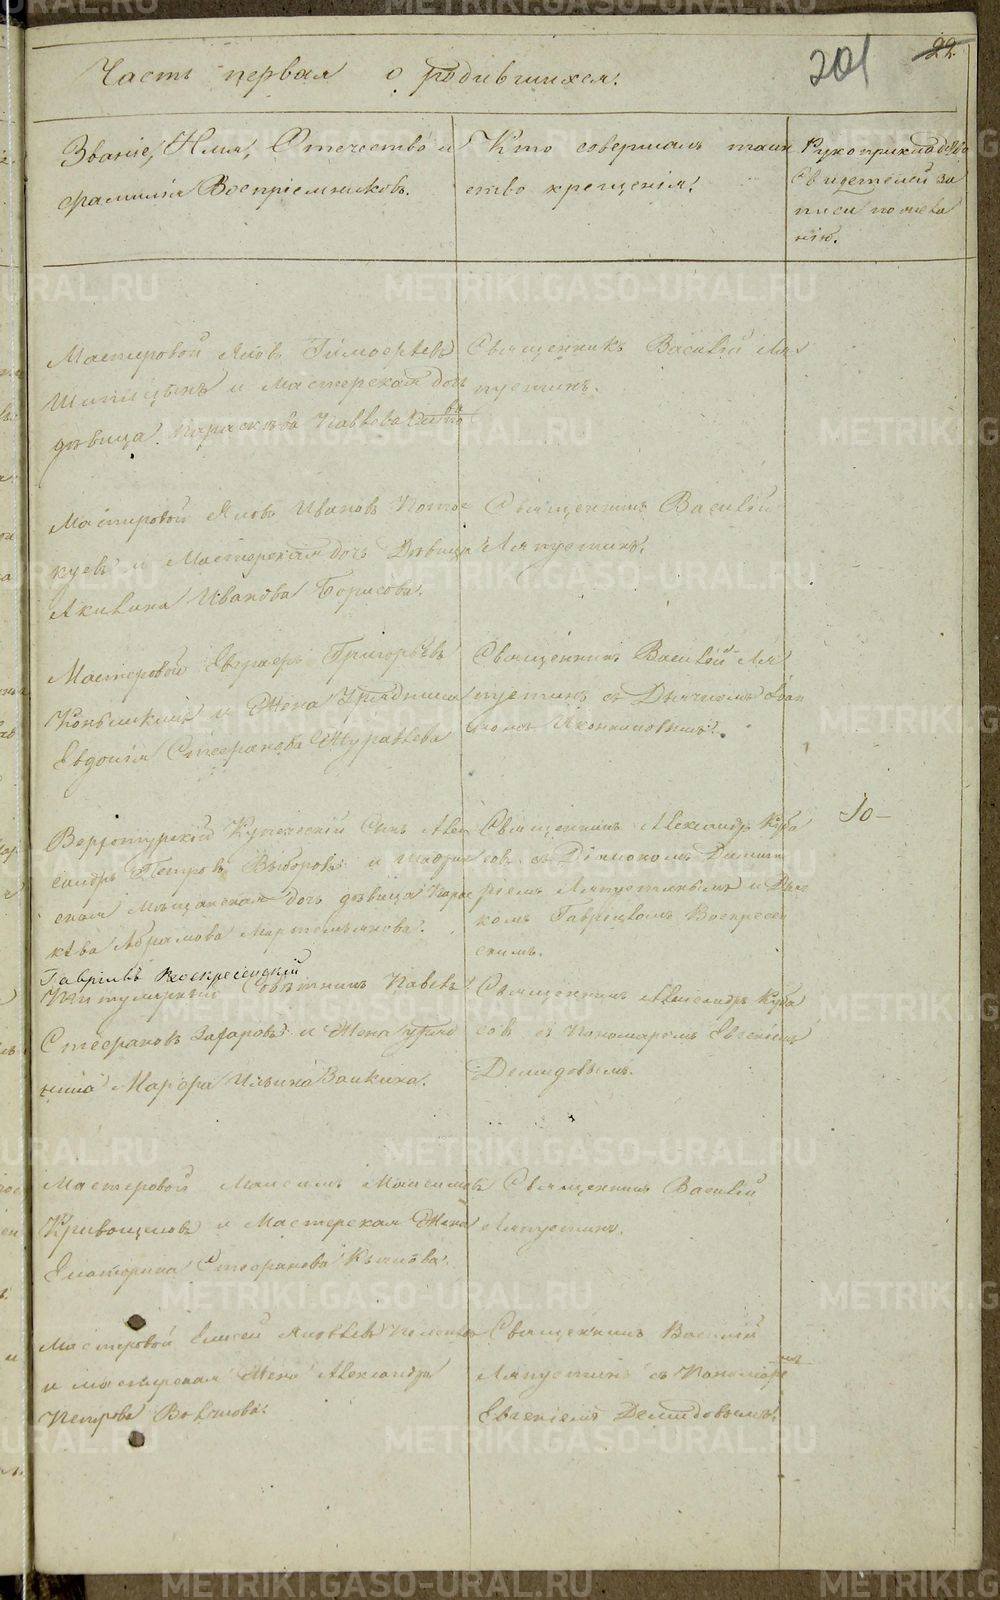 Часть первая о родившихся.
201
22
Званіе, Имя, Отечество и
фамилія Воспріемниковъ.
Кто совершалъ таин
ство крещенія.
Рукоприкладство
Свидетелей за
писи по жела
нію.
Мастеровой Яковъ Тимофеевъ
Шипицынъ и Мастерская дочь
дѣвица Параскѣва Павлова
Священникъ Василій Ля
пустинъ.
Мастеровой Яковъ Ивановъ
и Мастерская дочь Дѣвица
Акилина Иванова Борисова.
Священникъ Василій
Ляпустинъ.
Мастеровой Евграфъ Григорьевъ
и Жена Урядника
Евдокія Стефанова Журавлева
Священникъ Василій Ля
пустинъ съ Дьячкомъ Іоан
номъ Иконниковымъ.
Верхотурскій Купеческій Сынъ Алек
сандръ Петровъ Выборовъ и Шадрин
ская Мѣщанская дочь дѣвица Парас
кѣва Абрамова Мартемьянова.
Священникъ Александръ Куба
совъ съ Діакономъ Димит
ріемъ Ляпустинымъ и Дьяч
комъ Гавріиломъ Воскресен
скимъ.
10-
Гавріилъ Воскресенскій
Титулярный Совѣтникъ Павелъ
Стефановъ Захаровъ и Жена Уряд
ника Марфа Ильина Заикина.
Священникъ Александръ Куба
совъ съ Пономаремъ Евгеніемъ
Демидовымъ.
Мастеровой Максимъ Максимовъ
Кривощековъ и Мастерская Жена
Екатерина Стефанова
Священникъ Василій
Ляпустинъ.
Мастеровой Елисей Яковлевъ
и мастерская Жена Александра
Петрова
Священникъ Василій
Ляпустинъ съ Пономаре
мъ
Евгеніемъ Демидовымъ.
METRIKI.GASO-URAL.RU